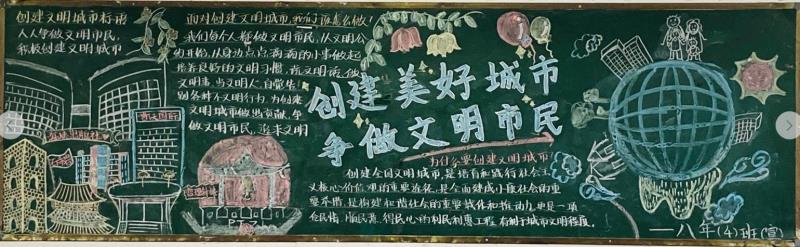 创建文明城市标语
人人争做文明市民,
积极创建文明城市
面对创建文明城市,我们该怎么做!
我们每个人都做文明市民,从文明公
约开始,从身边点点滴滴的小事做起
养成良好的文明习惯,说文明话,做
文明事,当文明人,自觉
制各种不文明行为,为创建
文明城市做出贡献,争
做文明市民,迎来文明
创建美好城市
争做文明市民
为什么要创建文明城市
创建全国文明城市,是培育和践行社会主
义核心价值观的重要途径,是全面建成小康社会的重
要举措,是构建和谐社会的重要载体和推动力,更是一项
合民情、顺民意、得民心的利民利惠工程,有利于城市文明程度。
一八年(4)班(宣)